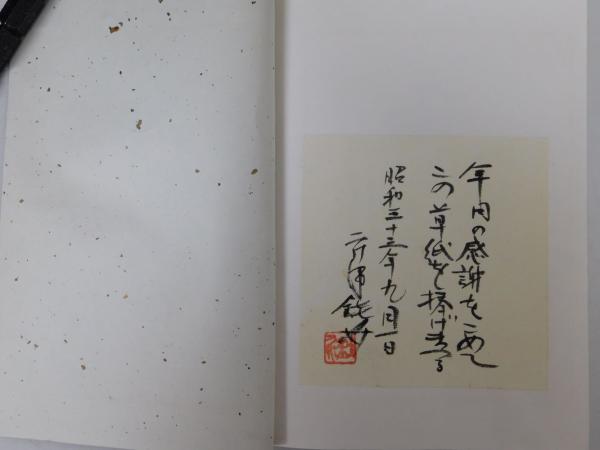 年月の感謝をこめて
この草紙を捧げまつる
昭和三十三年九月一日